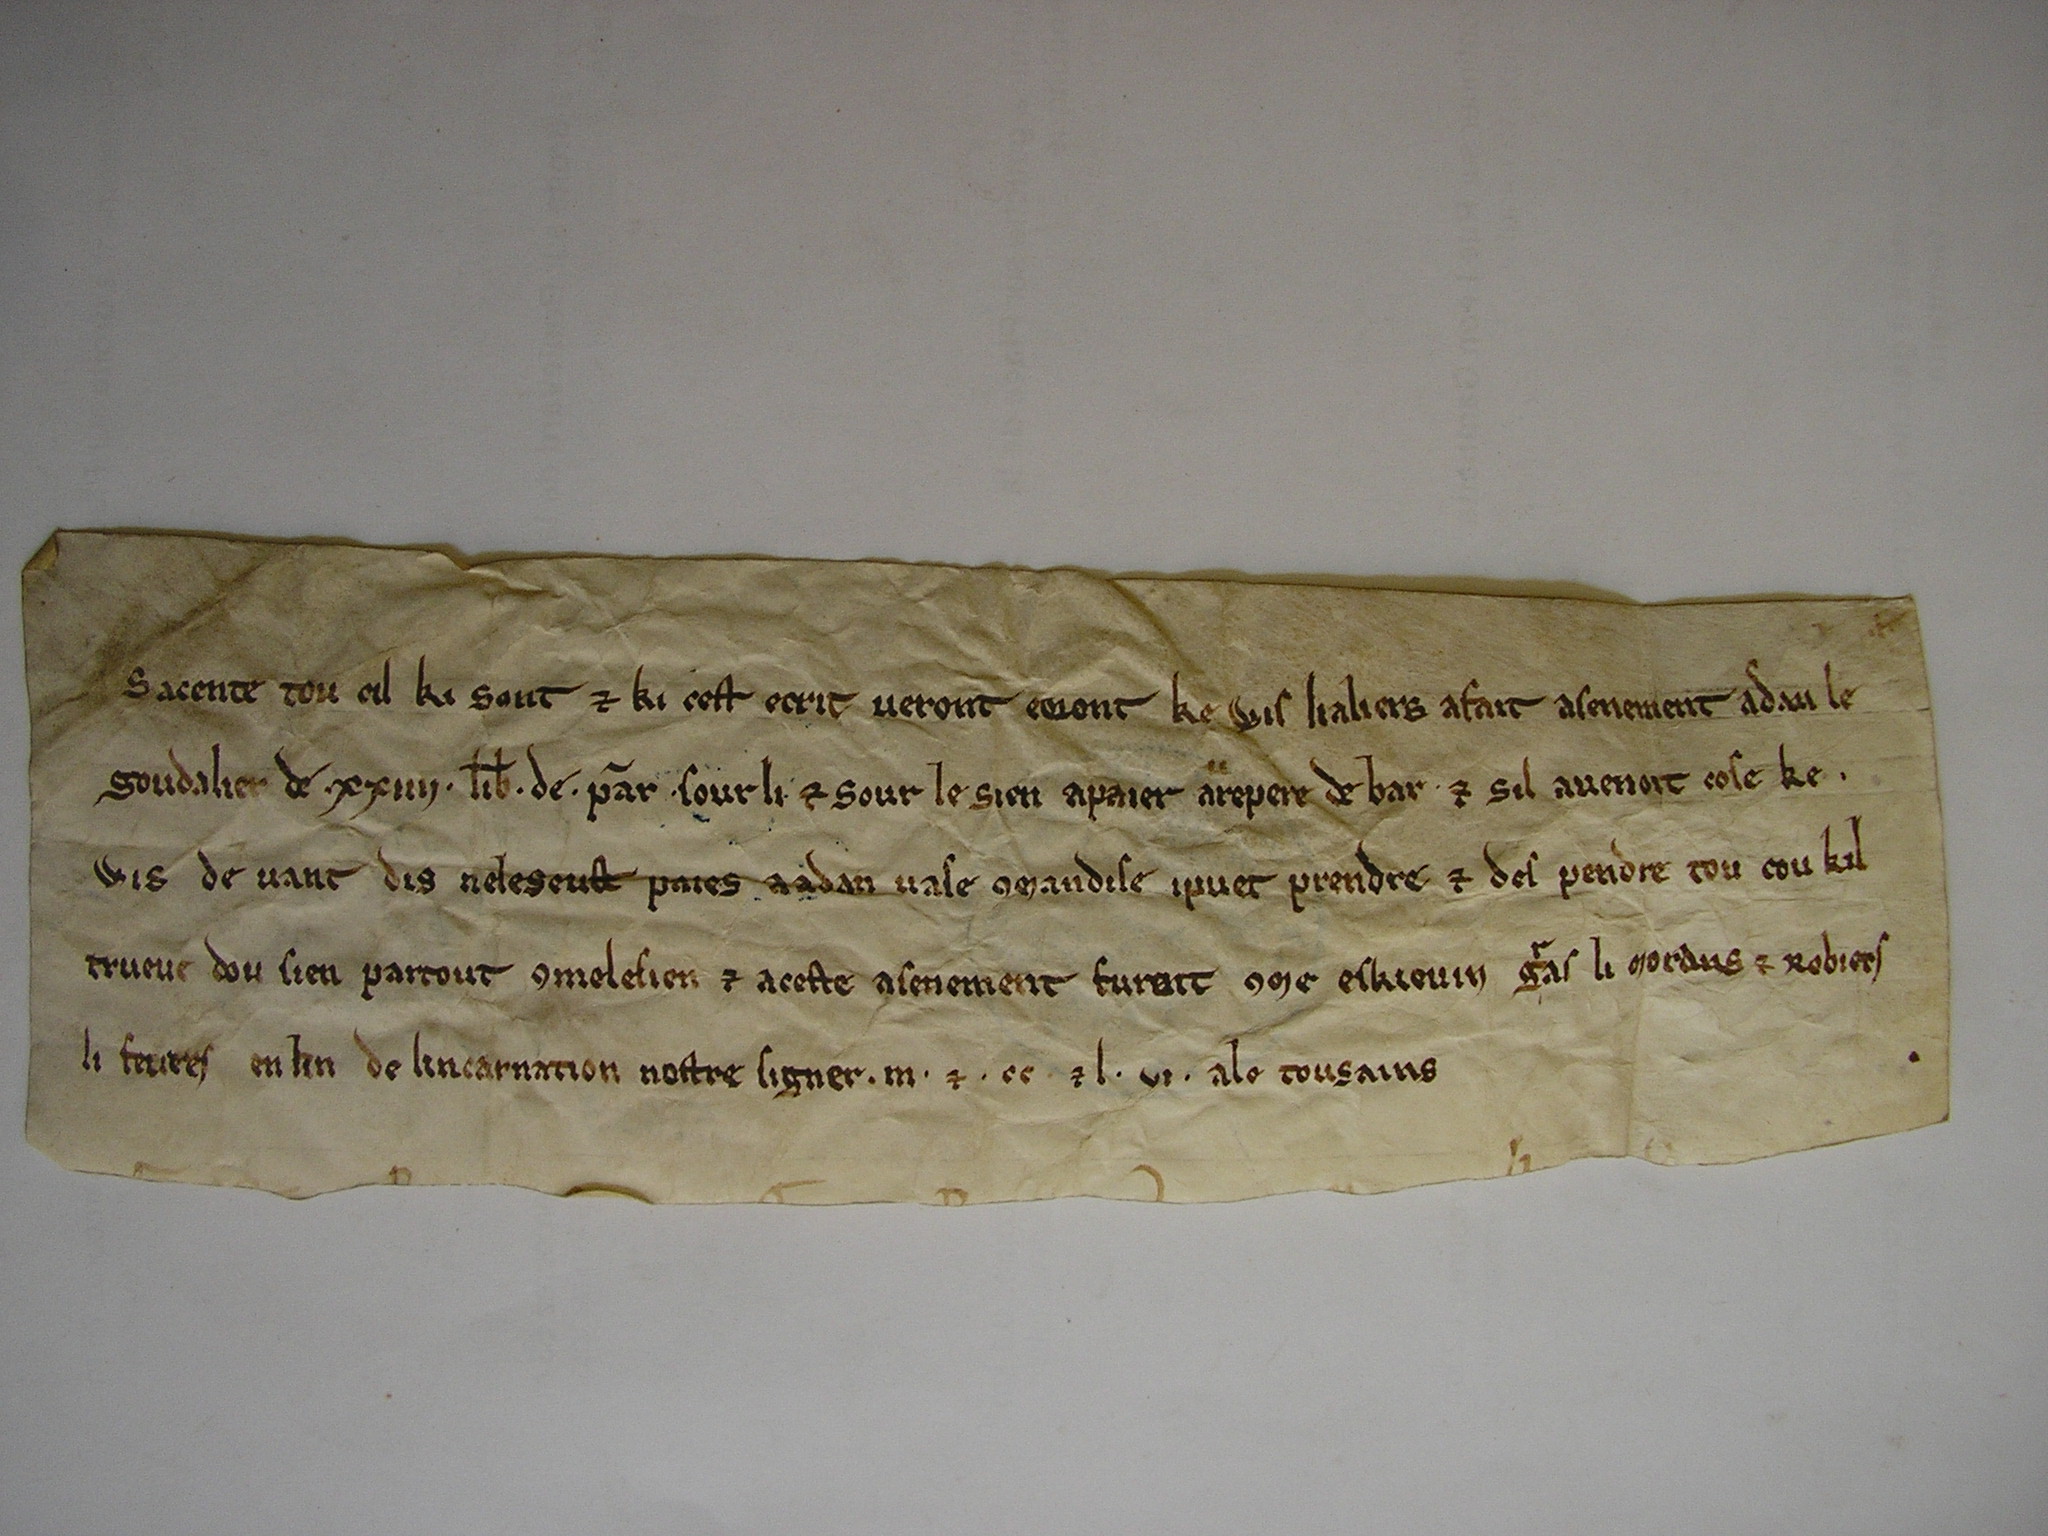 Sacente tou cil ki sont ⁊ ki cest ecrit ueront eoront ke wis lialiers afait asenement adan le
goudalier de .xxiiii. lib. de. par. sour li ⁊ sour le sien apaier arepere de bar ⁊ sil auenoit cose ke.
wis de uant dis neleseust paies aadan uale mandise ipuet prendre ⁊ des pendre tou cou kil
trueue dou sien partout 9melesien ⁊ aceste asenement furent 9me eskieuin gras li mordans ⁊ robiers
li feures en lin de lincarnation nostre signer. m. ⁊. cc. ⁊ l. vi. ale tousains